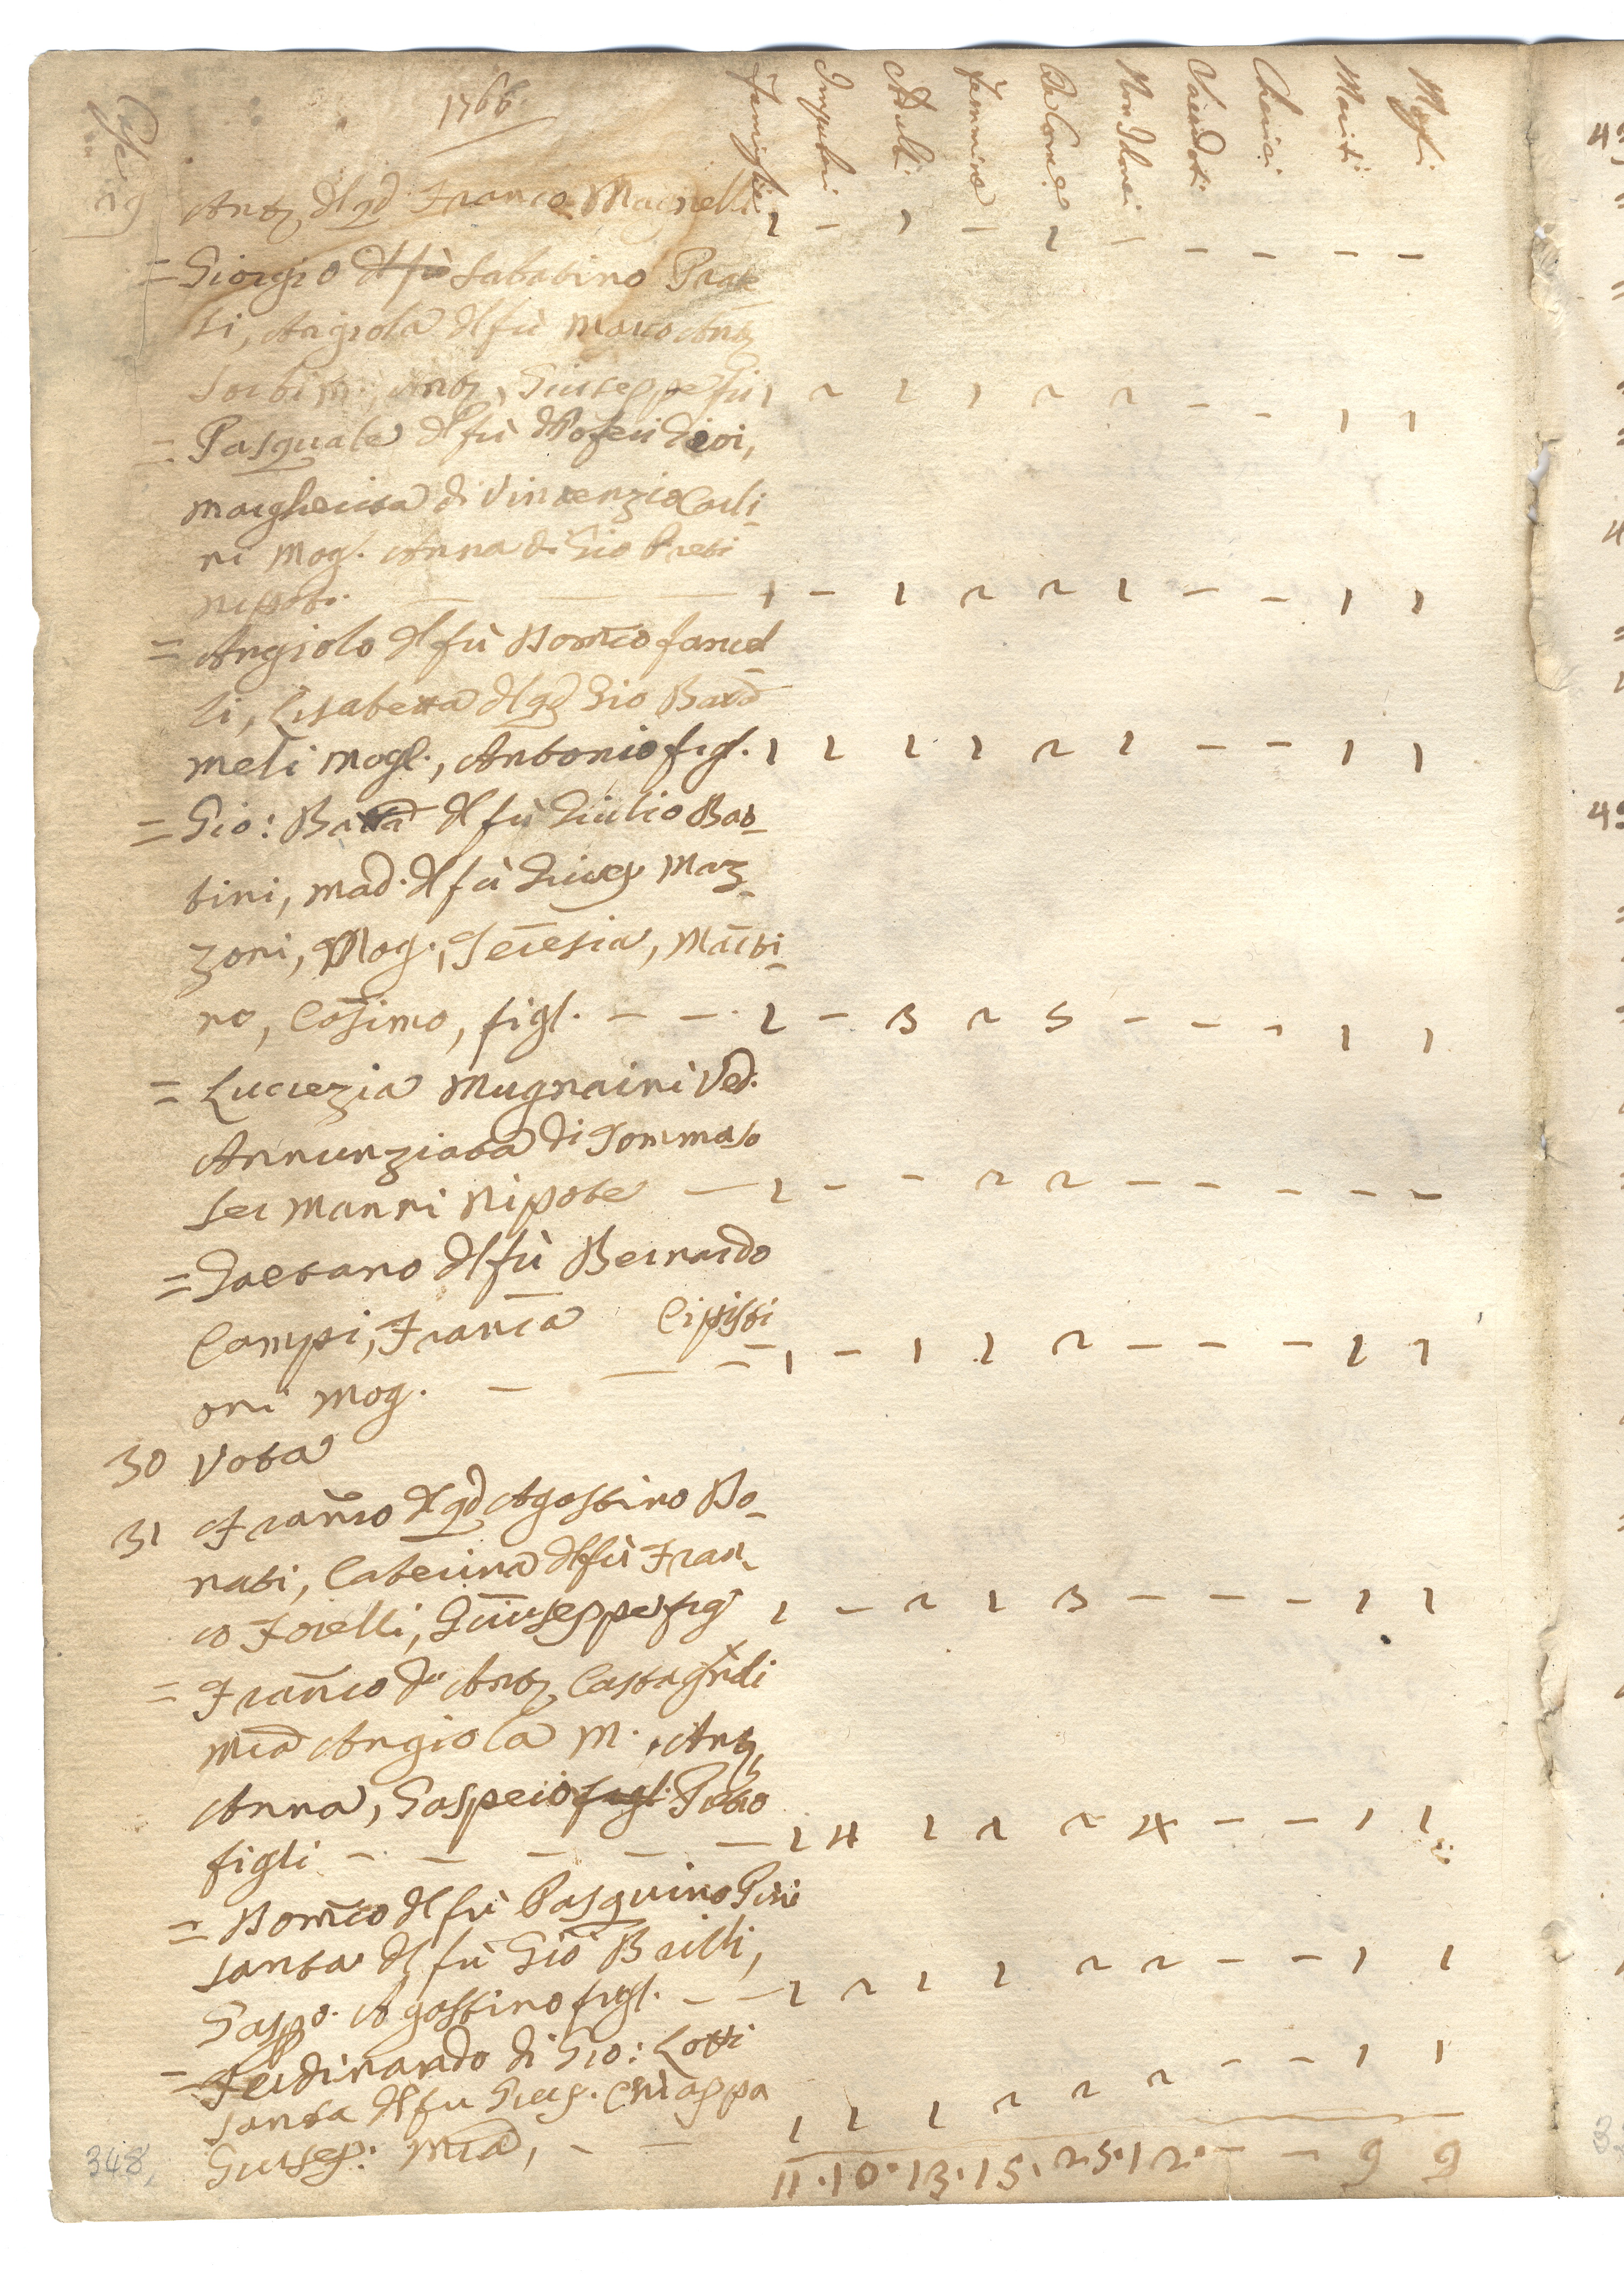 Case
29
1766.
Famiglie Impuberi Adulti Femmine Da Com.e Non Idonei Sacerdoti Cherici Mariti Mogli
Anto dl qd Franco Magnelli 1 - 1 - 1 - - - - -
= Giorgio dl fù Sabatino Prat
ti, Angiola dl fù Marco Anto
Sorbi m., Anto, Giuseppe fi 1 2 1 1 2 2 - - 1 1
= Pasquale dl fù
Margherita di Vincenzio Carli
ni Mog. Anna di Gio Preti
nipote. - - - 1 - 1 2 2 1 - - 1 1
= Angiolo dl fù Domco Fanel
li, Lisabetta dl qd Gio Batta
Meli Mogl., Antonio figl. 1 1 1 1 2 1 - - 1 1
= Gio: Batta dl fù Giulio Bar
tini, Mad. dl fù Giusep Maz
zoni, Mog., Teresia, Marti
no, Cosimo, figl. - - 1 - 3 2 5 - - - 1 1
= Lucrezia Mugnaini Ved.
Annunziata di Tommaso
Ser Manni Nipote - 1 - - 2 2 - - - - -
= Gaetano dl fù Bernardo
Campi, Franca Cipisti
oni Mog. - - = 1 - 1 1 2 - - - 1 1
30 Vota
31 Franco dl qd Agostino Do
nati, Caterina dl fù Fran
co Forelli, Giuseppe fig 1 - 2 1 3 - - - 1 1
= Franco di Anto Castagnoli
Mia Angiola M. Anto,
Anna, Gaspero figl. Pietro
figli - - - - - 1 4 1 1 2 4 - - 1 1
= Domco dl fù Pasquino Pini
Santa dl fù Gio Brilli,
Gaspo. Agostino figl. - - 1 2 1 1 2 2 - - 1 1
= Ferdinando di Gio: Lotti
Santa dl fu Giusep. Chiappa
Giusep: Mia, - - 1 1 1 2 2 2 - - 1 1
11. 10. 13. 15. 25. 12. - - 9 9
348.